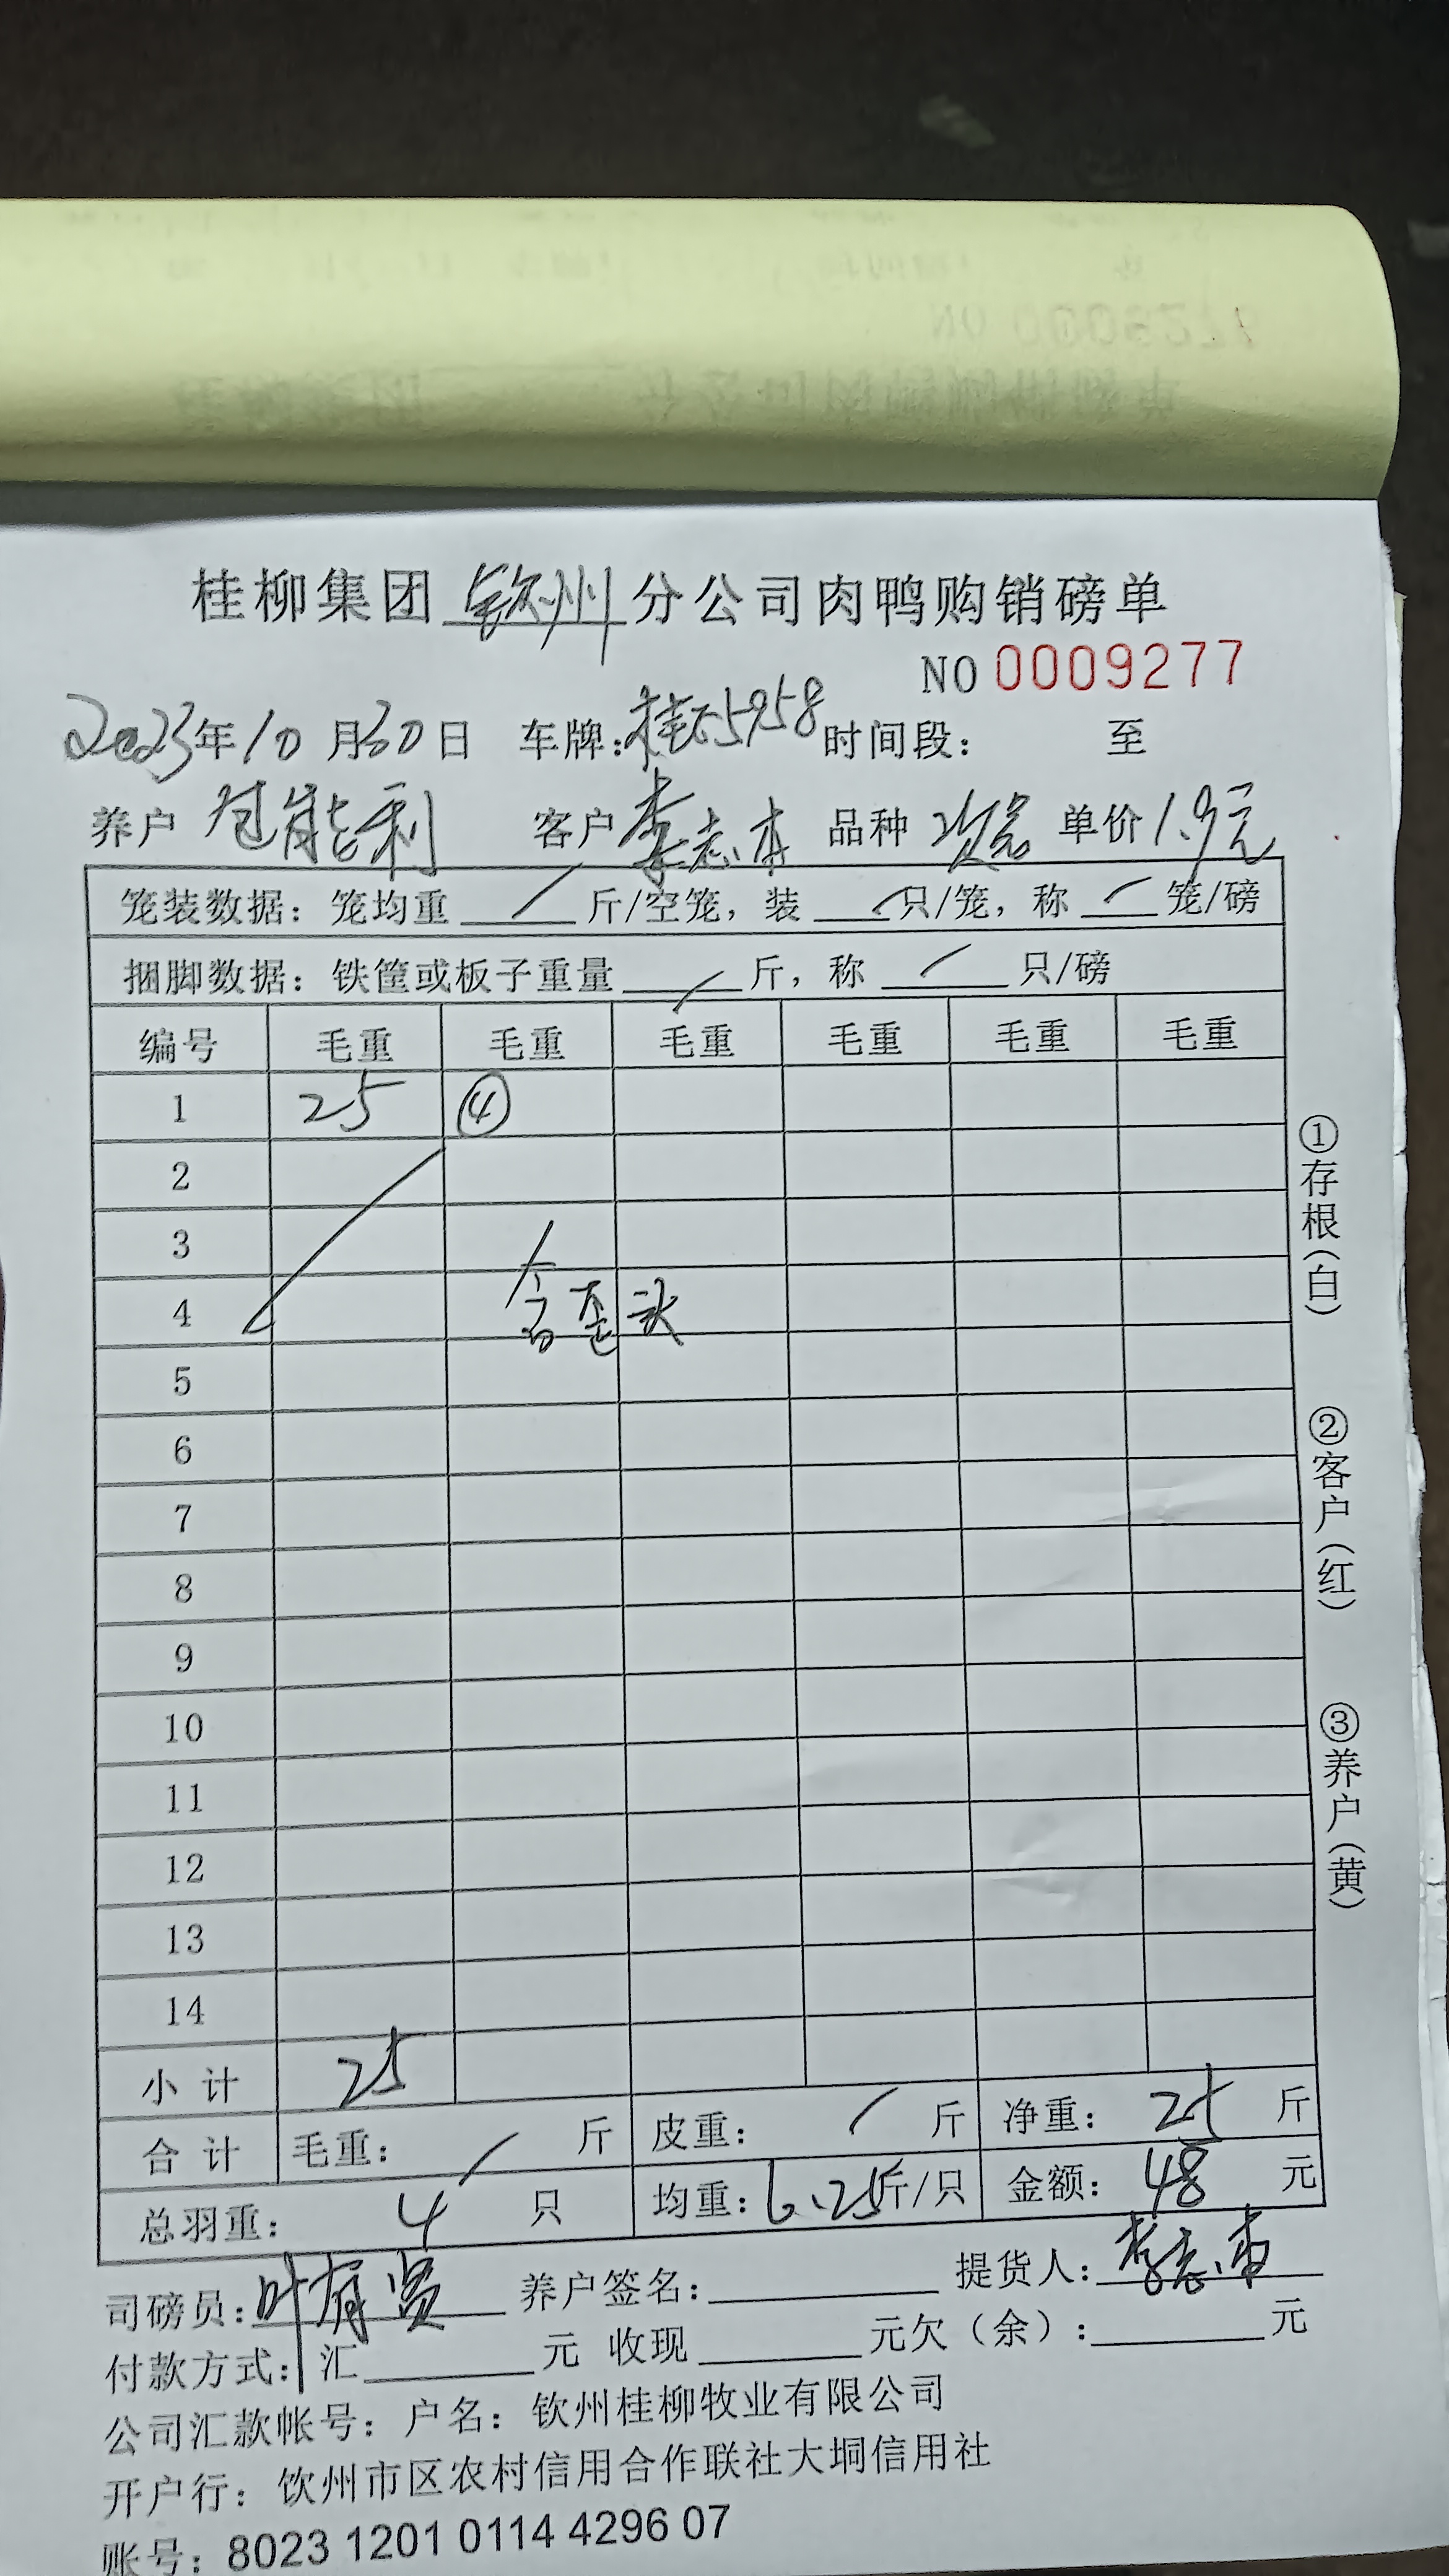 桂柳集团 钦州 分公司肉鸭购销磅单
NO 0009277
2023年10月30日 车牌: 时间段： 至
养户 包能利 客户 李志 品种 单价 1.9元
笼装数据：笼均重 / 斤/空笼，装 / 只/笼，称 / 笼/磅
捆脚数据：铁筐或板子重量 / 斤，称 / 只/磅
编号 毛重 毛重 毛重 毛重 毛重 毛重
1 25 ④
2
3
4 含歪头
5
6
7
8
9
10
11
12
13
14
小 计 25
合 计 毛重： / 斤 皮重： / 斤 净重： 25 斤
总羽重： 4 只 均重：6.25斤/只 金额： 48 元
司磅员: 叶 贤 养户签名: 提货人: 李志
付款方式: 汇 元 收现 元欠（余）: 元
公司汇款帐号：户名：钦州桂柳牧业有限公司
开户行：饮州市区农村信用合作联社大垌信用社
账号：8023 1201 0114 4296 07
①存根(白)
②客户(红)
③养户(黄)